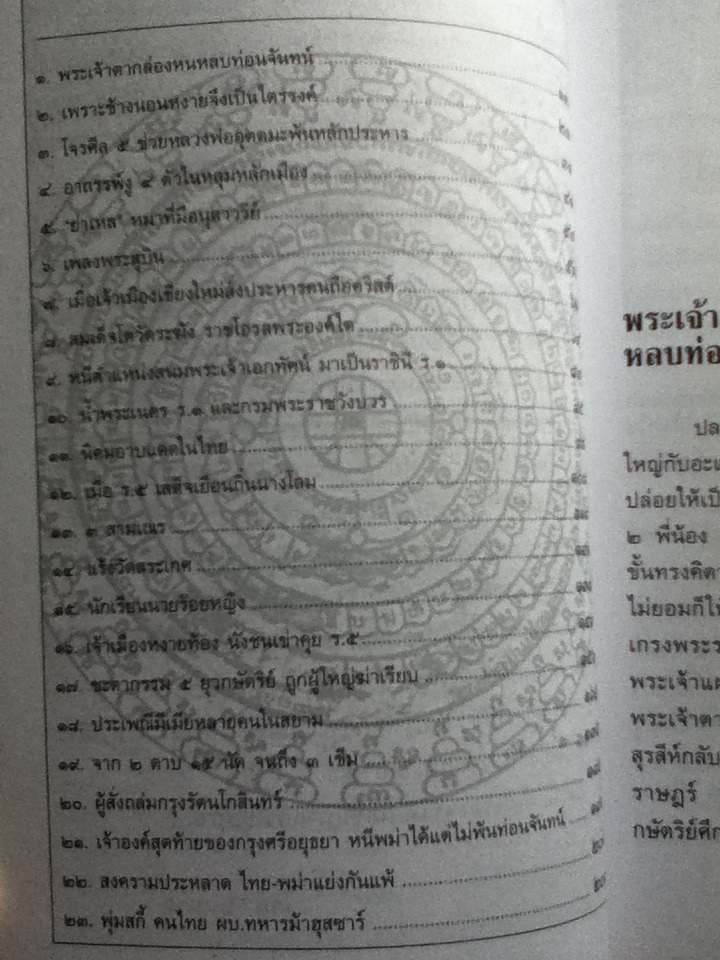 ๑. พระเจ้าตากล่องหนหลบท่อนจันทน์
๒. เพราะช้างนอนหงายจึงเป็นไตรรงค์
๓. โจรศีล ๕ ช่วยหลวงพ่ออุตตมะพ้นหลักประหาร
๔. อาถรรพ์งู ๔ ตัวในหลุมหลักเมือง
๕. "ย่าเหล" หมาที่มีอนุสาวรีย์
๖. เพลงพระสุบิน
๗. เมื่อเจ้าเมืองเชียงใหม่สั่งประหารคนถือคริสต์
๘. สมเด็จโตวัดระฆัง ราชโอรสพระองค์ใด
๙. หนีตำแหน่งสนมพระเจ้าเอกทัศน์ มาเป็นราชินี ร.๑
๑๐. น้ำพระเนตร ร.๑ และกรมพระราชวังบวร
๑๑. นิคมอาบแดดในไทย
๑๒. เมื่อ ร.๕ เสด็จเยือนถิ่นนางโลม
๑๓. ๓ สามเณร
๑๔. แร้งวัดสระเกศ
๑๕. นักเรียนนายร้อยหญิง
๑๖. เจ้าเมืองหงายท้อง นั่งชนเข่าคุย ร.๕
๑๗. ชะตากรรม ๕ ยุวกษัตริย์ ถูกผู้ใหญ่ฆ่าเรียบ
๑๘. ประเพณีมีเมียหลายคนในสยาม
๑๙. จาก ๒ ดาบ ๑๕ นัด จนถึง ๓ เข็ม
๒๐. ผู้สั่งถล่มกรุงรัตนโกสินทร์
๒๑. เจ้าองค์สุดท้ายของกรุงศรีอยุธยา หนีพม่าได้แต่ไม่พ้นท่อนจันทน์
๒๒. สงครามประหลาด ไทย-พม่าแย่งกันแพ้
๒๓. พุ่มสกี้ คนไทย ผบ.ทหารม้าฮุสซาร์
พระเจ้า
หลบท่อ
ปล
ใหญ่กับอะแ
ปล่อยให้เป็
๒ พี่น้อง
ขั้นทรงคิด
ไม่ยอมก็ให้
เกรงพระร
พระเจ้าแผ
พระเจ้าตา
สุรสีห์กลับ
ราษฎร์
กษัตริย์ศึก